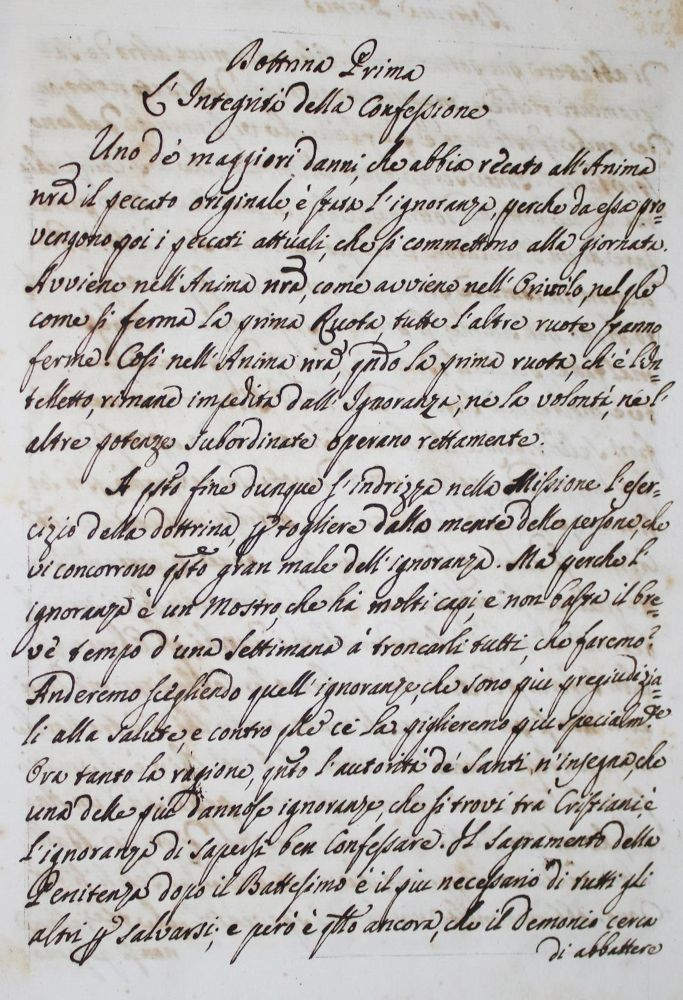 Dottrina Prima
L'Integrità della Confessione
Uno dè maggiori danni, che abbia recato all'Anima
nrã il peccato originale, è stata l'ignoranza, perche da essa pro=
vengono poi i peccati attuali, che si commettono alla giornata.
Avviene nell'Anima nrã, come avviene nell'Oriuolo, nel qle
come si ferma la prima Ruota tutte l'altre ruote stanno
ferme. Così nell'Anima nrã, qndo la prima ruota, ch'è l'in=
telletto, rimane impedita dall'Ignoranza, nè la volontà, nè l'
altre potenze subordinate operano rettamente.
A qsto fine dunque s'indrizza nella Missione l'eser=
cizio della dottrina, p togliere dalla mente delle persone, che
vi concorrono qsto gran male dell'ignoranza. Ma perche l'
ignoranza è un Mostro, che há molti capi, e non basta il bre=
vè tempo d'una Settimana á troncarli tutti, che faremo?
Anderemo scegliendo quell'ignoranze, che sono piu pregiudizia=
li alla salute, e contro qlle ce la piglieremo piu specialmte
Ora tanto la ragione, qnto l'autorità dé Santi n'insegna, che
una delle piu dannose ignoranze, che si trovi trà Cristiani, è
l'ignoranza di sapersi ben Confessare. Il sagramento della
Penitenza dopo il Battesimo è il piu necessario di tutti gli
altri p salvarsi; e però è qllo ancora, che il demonio cerca
di abbattere